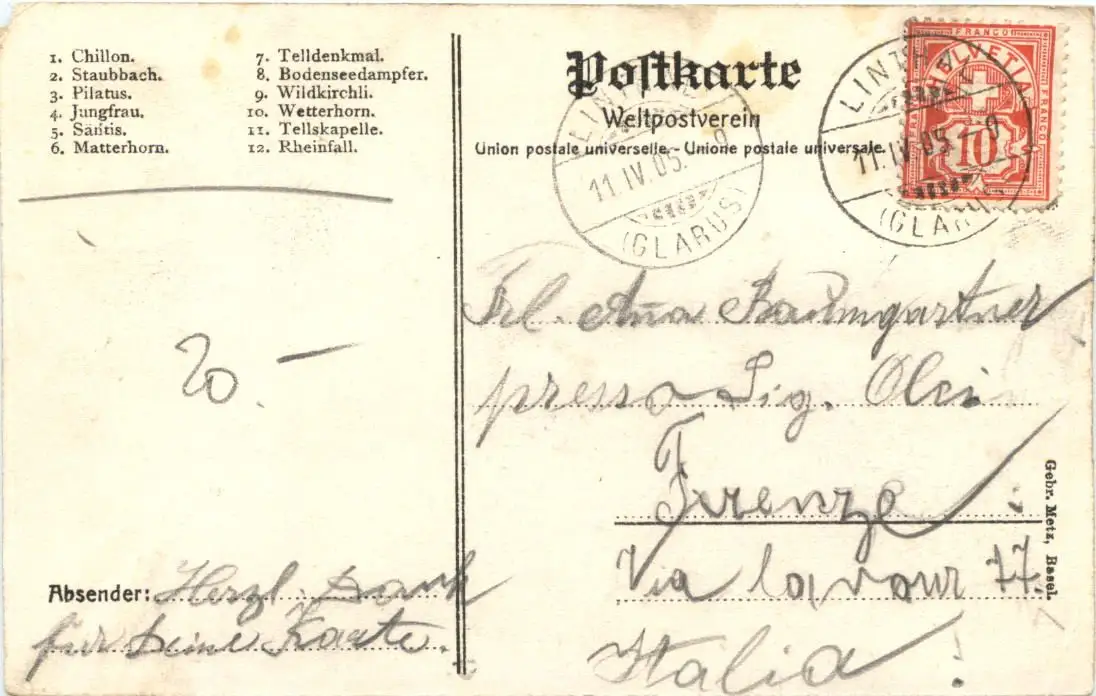 1. Chillon.
2. Staubbach.
3. Pilatus.
4. Jungfrau.
5. Säntis.
6. Matterhorn.
7. Telldenkmal.
8. Bodenseedampfer.
9. Wildkirchli.
10. Wetterhorn.
11. Tellskapelle.
12. Rheinfall.
Postkarte
Weltpostverein
Union postale universelle. - Unione postale universale.
11.IV.05.
(GLARUS)
LINTHAL
11.IV.05.-9
(GLARUS)
FRANCO
HELVETIA
FRANCO
10
Frl. Anna Baumgartner
presso Sig.
Firenze
Via Cavour 77.
Italia!
Gebr. Metz, Basel.
20.-
Absender: Herzl. Dank
für Deine Kaarte.